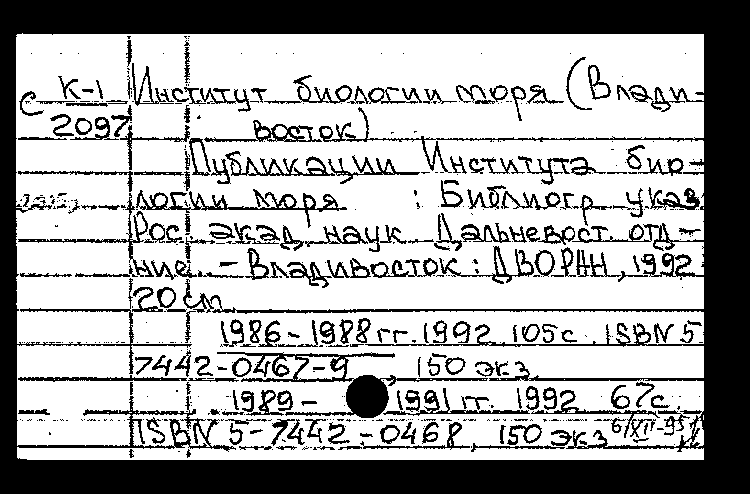 С К-1 Институт биологии моря (Влади-
2097 восток)
Публикации Института био-
логии моря : Библиогр. указ.
Рос. акад. наук Дальневост. отд-
ние. - Владивосток : ДВО РАН, 1992
20 см.
1986 - 1988 гг. 1992 105 с. ISBN 5
7442-0467-9, 150 экз.
1989 - 1991 гг. 1992 67 с.
ISBN 5-7442-0468, 150 экз 6/XII-95